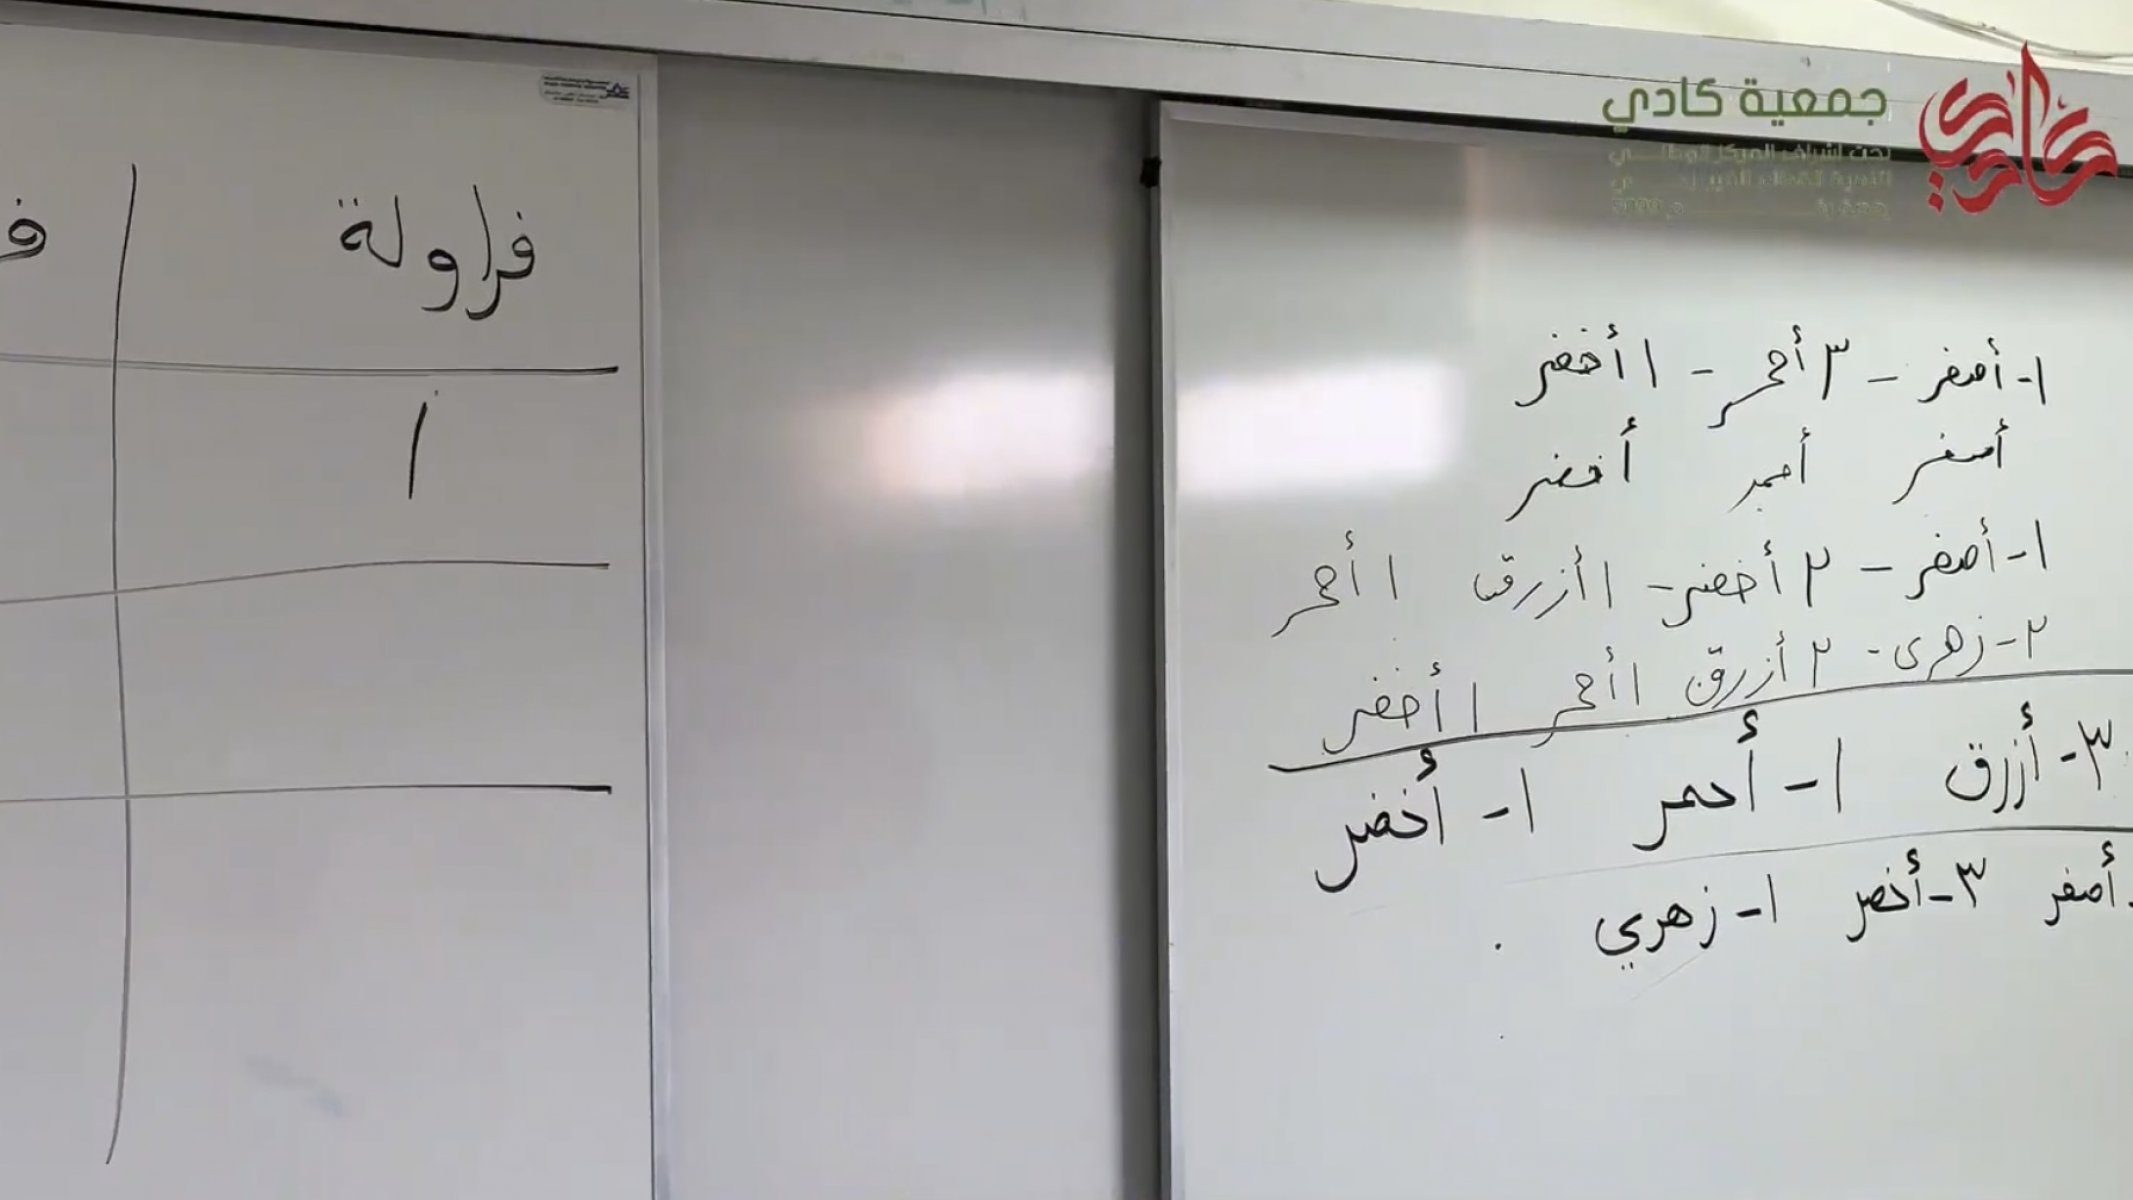 جمعية كادي
كادي
١- أصفر - ٣ أحمر - ١ أخضر
أصفر أحمر أخضر
١- أصفر - ٢ أخضر - ١ أزرق ١ أحمر
٢- زهري - ٢ أزرق ١ أحمر ١ أخضر
٣- أزرق ١- أحمر ١- أخضر
أصفر ٣- أخضر ١- زهري
فراولة
١